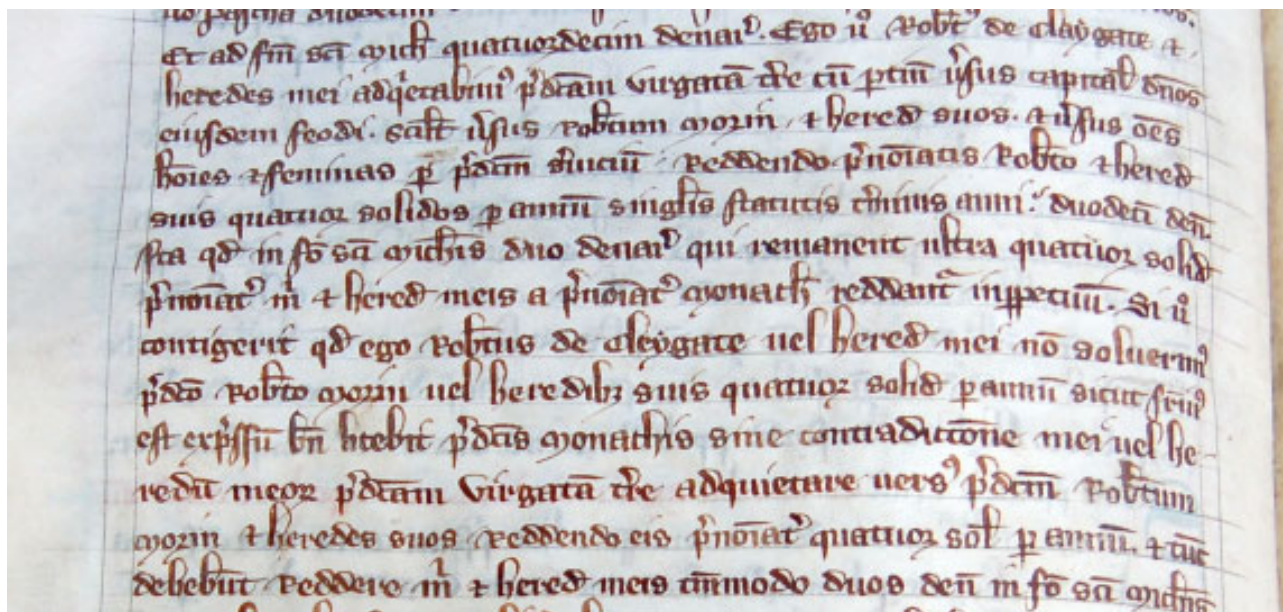 duodecim
Et ad fm̄ sc̄i Mich̄ quatuordecim denar᷒. Ego u᷒ Rob̄t᷒ de Claygate ⁊
heredes mei adq̓etabim᷒ p̓dc̄am virgatā t̄re cū ptin̄ u̓sus capital̄ dn̄os
eiusdem feodi. scil̄t u̓sus Rob̄tum Morin ⁊ hered̄ suos. ⁊ u̓sus om̄s
ho͞ies ⁊ feminas ꝑ p̓dc̄m s̓uiciū. Reddendo p̓no͞iatis Rob̄to ⁊ hered̄
suis quatuor solidos ꝑ annū singl̄is statutis t̓minis anni. duodeci den̄.
Ita qd̄ in fō sc̄i Mich̄is duo denar᷒ qui remanent ultra quatuor solid̄
p̓no͞iat᷒ m̓ ⁊ hered̄ meis a p̓no͞iat᷒ Monach̄ reddant᷒ inꝑpetuū. Si u᷒
contigerit qd̄ ego Rob̄tus de Cleygate uel hered̄ mei nō soluerim᷒
p̓dc̄o Rob̄to Morin uel heredibꝫ suis quatuor solid̄ ꝑ annū sicut
est exp̓ssū bn̄ licebit p̓dc̄is Monachis sine contradictōne mei uel he-
redū meoꝝ p̓dc̄am virgatā t̄re adquietare uers᷒ p̓dc̄m Rob̄tum
Morin ⁊ heredes suos Reddendo eis p̓no͞iat᷒ quatuor sol̄ ꝑ annū. ⁊ tūc
debebūt Reddere m̓ ⁊ hered̄ meis tm̄modo duos den̄ in fō sc̄i Mich̄is